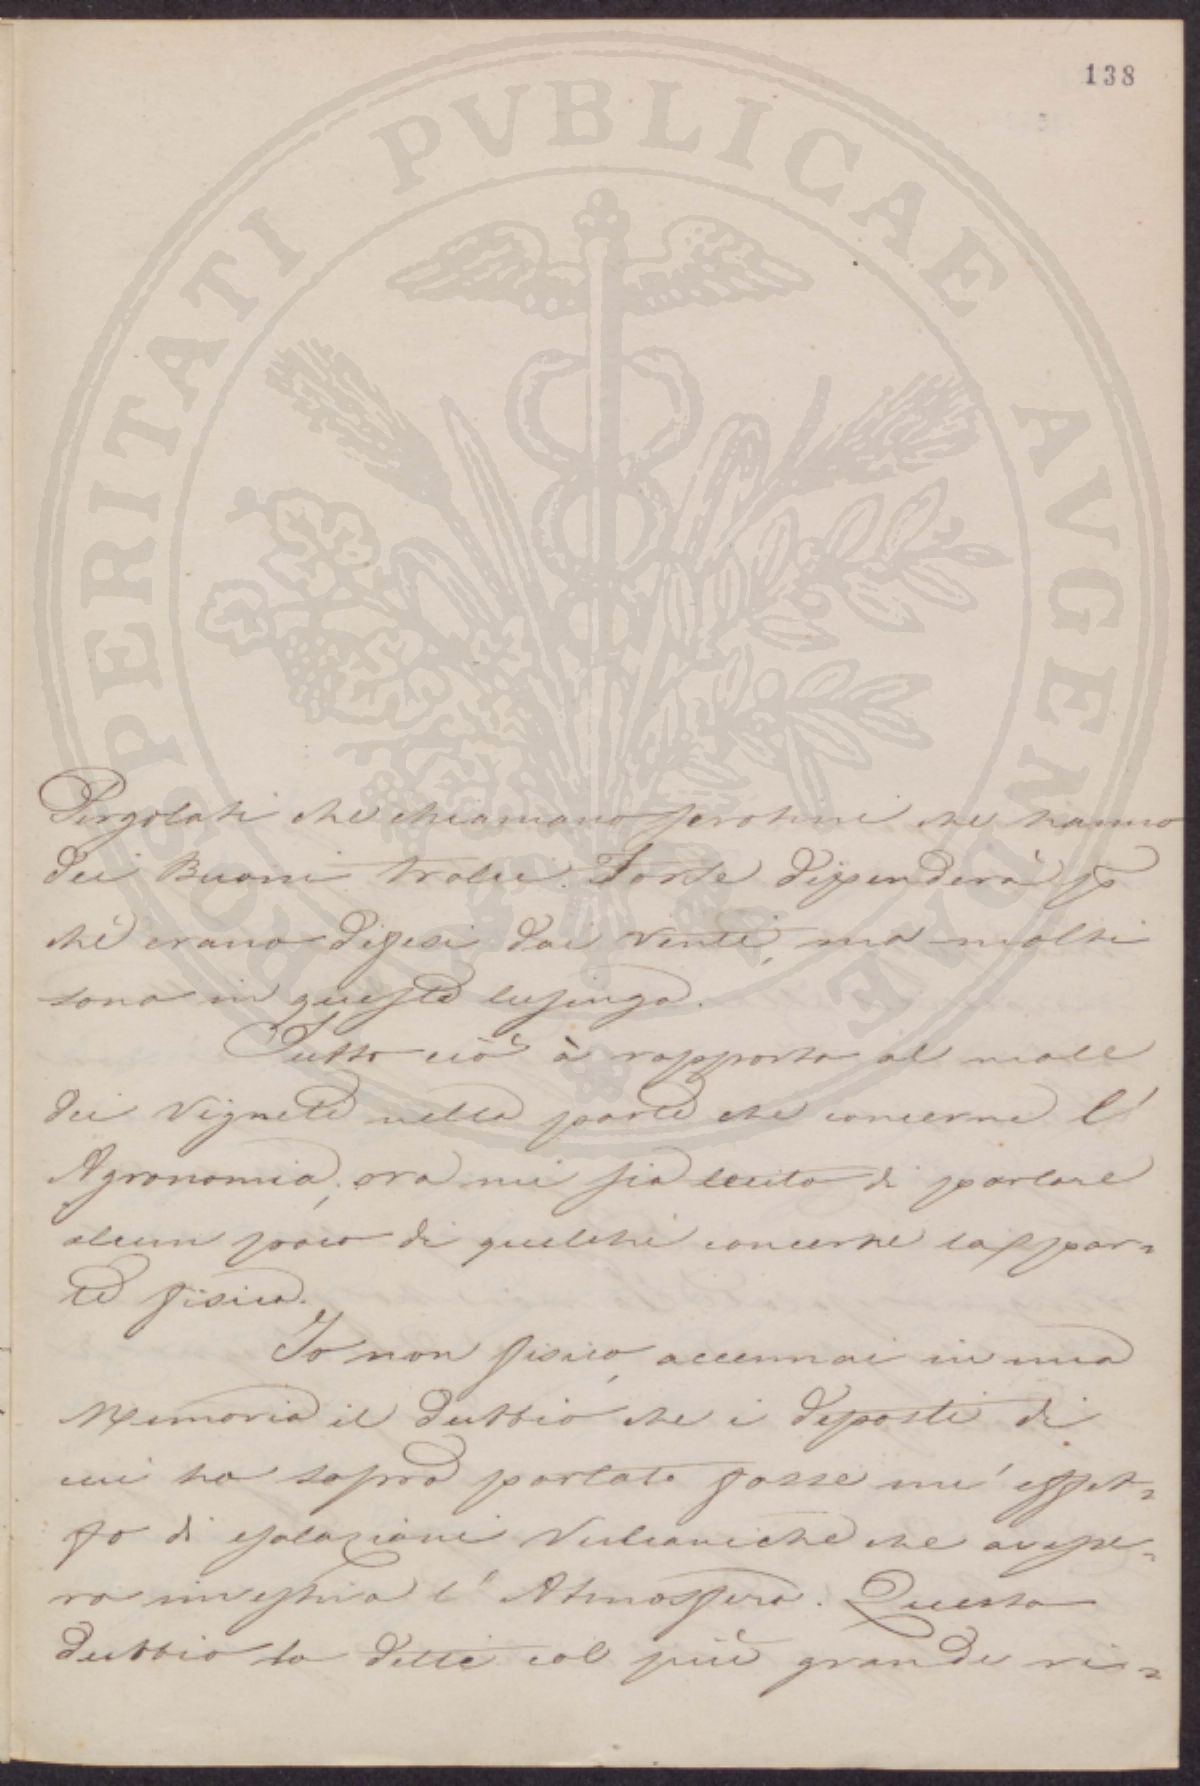 138
Pergolati che chiamano serotini che hanno
dei Buoni tralci. Forse dipenderà p
chè erano difesi dai venti, ma molti
sono in questa lusinga.
Tutto ciò à rapporto al male
dei Vigneti nella parte che concerne l'
Agronomia; ora mi sia lecito di parlare
alcun poco di quelchè concerne la par=
te fisica.
Io non fisico, accennai in una
Memoria il dubbio che i deposti di
cui ho sopra parlato fosse un' effet=
to di esalazioni Vulcaniche che avesse=
ro investita l'Atmosfera. Questo
dubbio lo detti col più grande ri=
PROSPERITATI PVBLICAE AVGENDAE